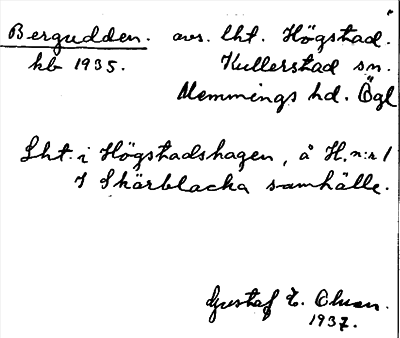 Bergudden. avs. lht. Högstad.
kb 1935. Kullerstad sn.
Memmings hd. Ögl
Lht. i Högstadshagen, å H. n:r 1
I Skärblacka samhälle.
Gustaf E. Olsson.
1937.